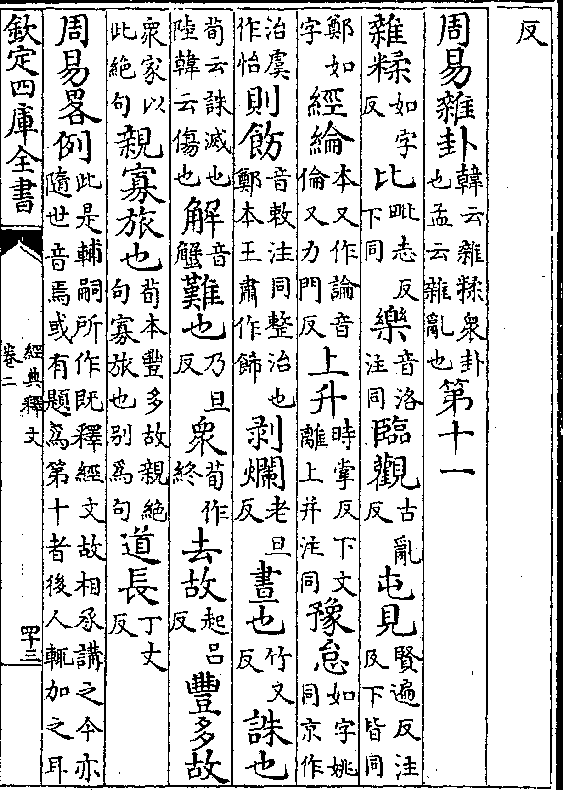 反
周易雜卦韓云雜糅衆卦也孟云雜亂也第十一
雜糅如字反比毗志反下同樂音洛注同臨觀古亂反屯見賢遍反注及下皆同
鄭如字經綸本又作論音倫又力門反上升時掌反下文離上并注同豫怠如字姚同京作
治虞作怡則飭音敕注同整治也鄭本王肅作飾剥爛老旦反晝也竹又反誅也
荀云誅滅也陸韓云傷也解音蟹難也乃旦反衆荀作終去故起呂反豐多故
衆家以此絶句親寡旅也荀本豐多故親絶句寡旅也别為句道長丁丈反
周易畧例此是輔嗣所作既釋經文故相承講之今亦隨世音焉或有題為第十者後人輒加之耳
欽定四庫全書
經典釋文
卷二
四十三